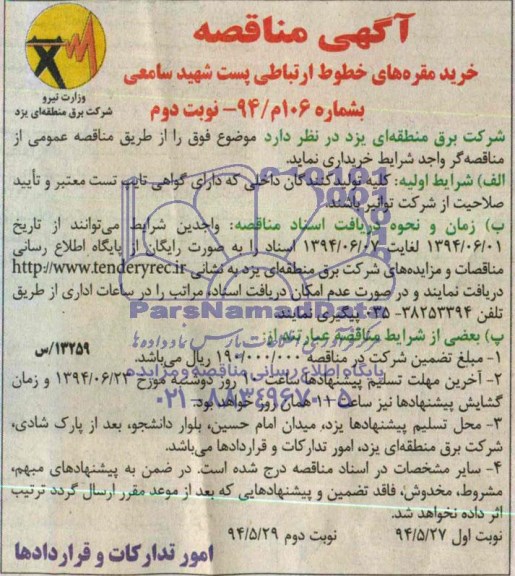 آگهی مناقصه
خرید مقره‌های خطوط ارتباطی پست شهید سامعی
بشماره ۱۰۶م/۹۴- نوبت دوم
وزارت نیرو
شرکت برق منطقه‌ای یزد
شرکت برق منطقه‌ای یزد در نظر دارد موضوع فوق را از طریق مناقصه عمومی از
مناقصه‌گر واجد شرایط خریداری نماید.
الف) شرایط اولیه: کلیه تولیدکنندگان داخلی که دارای گواهی تایپ تست معتبر و تأیید
صلاحیت از شرکت توانیر باشند.
ب) زمان و نحوه دریافت اسناد مناقصه: واجدین شرایط می‌توانند از تاریخ
۱۳۹۴/۰۶/۰۱ لغایت ۱۳۹۴/۰۶/۰۷ اسناد را به صورت رایگان از پایگاه اطلاع رسانی
مناقصات و مزایده‌های شرکت برق منطقه‌ای یزد به نشانی http://www.tenderyrec.ir
دریافت نمایند و در صورت عدم امکان دریافت اسناد، مراتب را در ساعات اداری از طریق
تلفن ۳۸۲۵۳۳۹۴-۰۳۵ پیگیری نمایند.
پ) بعضی از شرایط مناقصه عبارتند از:
۱۳۲۵۹/س
۱- مبلغ تضمین شرکت در مناقصه ۱۹۰/۰۰۰/۰۰۰ ریال می‌باشد.
۲- آخرین مهلت تسلیم پیشنهادها ساعت ۱۰ روز دوشنبه مورخ ۱۳۹۴/۰۶/۲۳ و زمان
گشایش پیشنهادها نیز ساعت ۱۱ همان روز خواهد بود.
۳- محل تسلیم پیشنهادها یزد، میدان امام حسین، بلوار دانشجو، بعد از پارک شادی،
شرکت برق منطقه‌ای یزد، امور تدارکات و قراردادها می‌باشد.
۴- سایر مشخصات در اسناد مناقصه درج شده است. در ضمن به پیشنهادهای مبهم،
مشروط، مخدوش، فاقد تضمین و پیشنهادهایی که بعد از موعد مقرر ارسال گردد ترتیب
اثر داده نخواهد شد.
نوبت اول ۹۴/۵/۲۷ نوبت دوم ۹۴/۵/۲۹
امور تدارکات و قراردادها
ParsNamadData
پایگاه اطلاع رسانی مناقصه و مزایده
۰۲۱-۸۸۳۴۹۶۷۰-۵